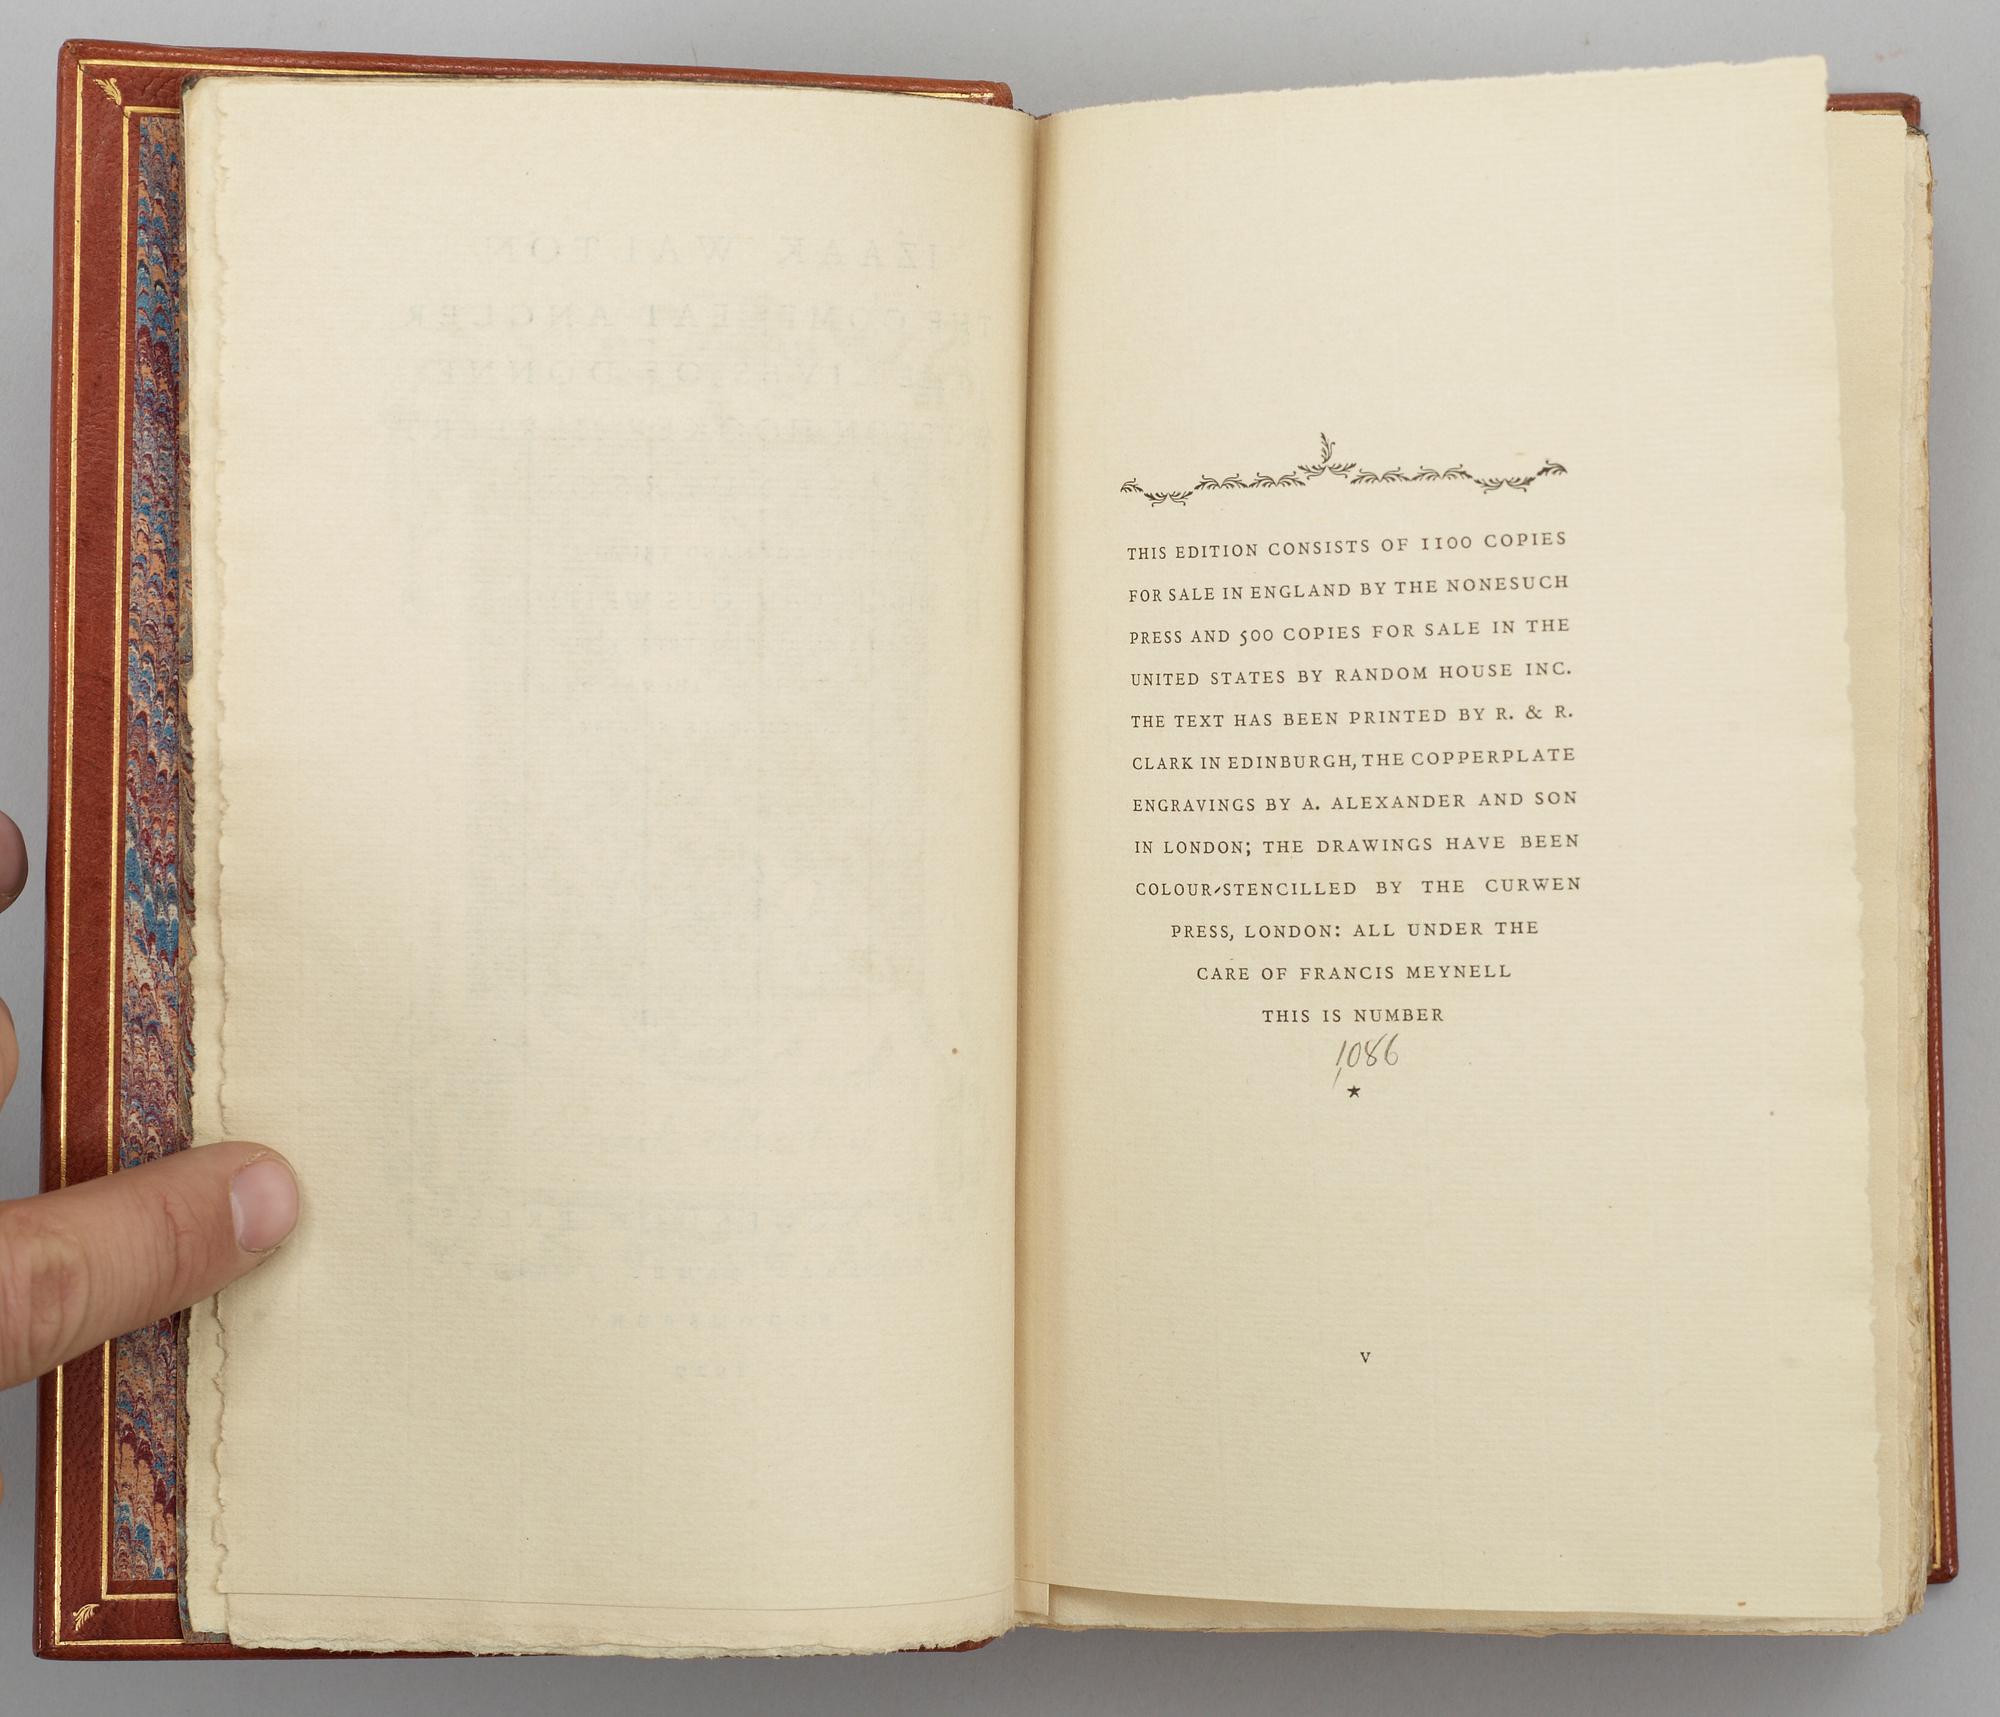 IZAAK WALTON
THE COMPLEAT ANGLER
THE LIVES OF DONNE
WOTTON HOOKER HERBERT
BLOOMSBURY
1929
THIS EDITION CONSISTS OF 1100 COPIES
FOR SALE IN ENGLAND BY THE NONESUCH
PRESS AND 500 COPIES FOR SALE IN THE
UNITED STATES BY RANDOM HOUSE INC.
THE TEXT HAS BEEN PRINTED BY R. & R.
CLARK IN EDINBURGH, THE COPPERPLATE
ENGRAVINGS BY A. ALEXANDER AND SON
IN LONDON; THE DRAWINGS HAVE BEEN
COLOUR-STENCILLED BY THE CURWEN
PRESS, LONDON: ALL UNDER THE
CARE OF FRANCIS MEYNELL
THIS IS NUMBER
1086
★
v